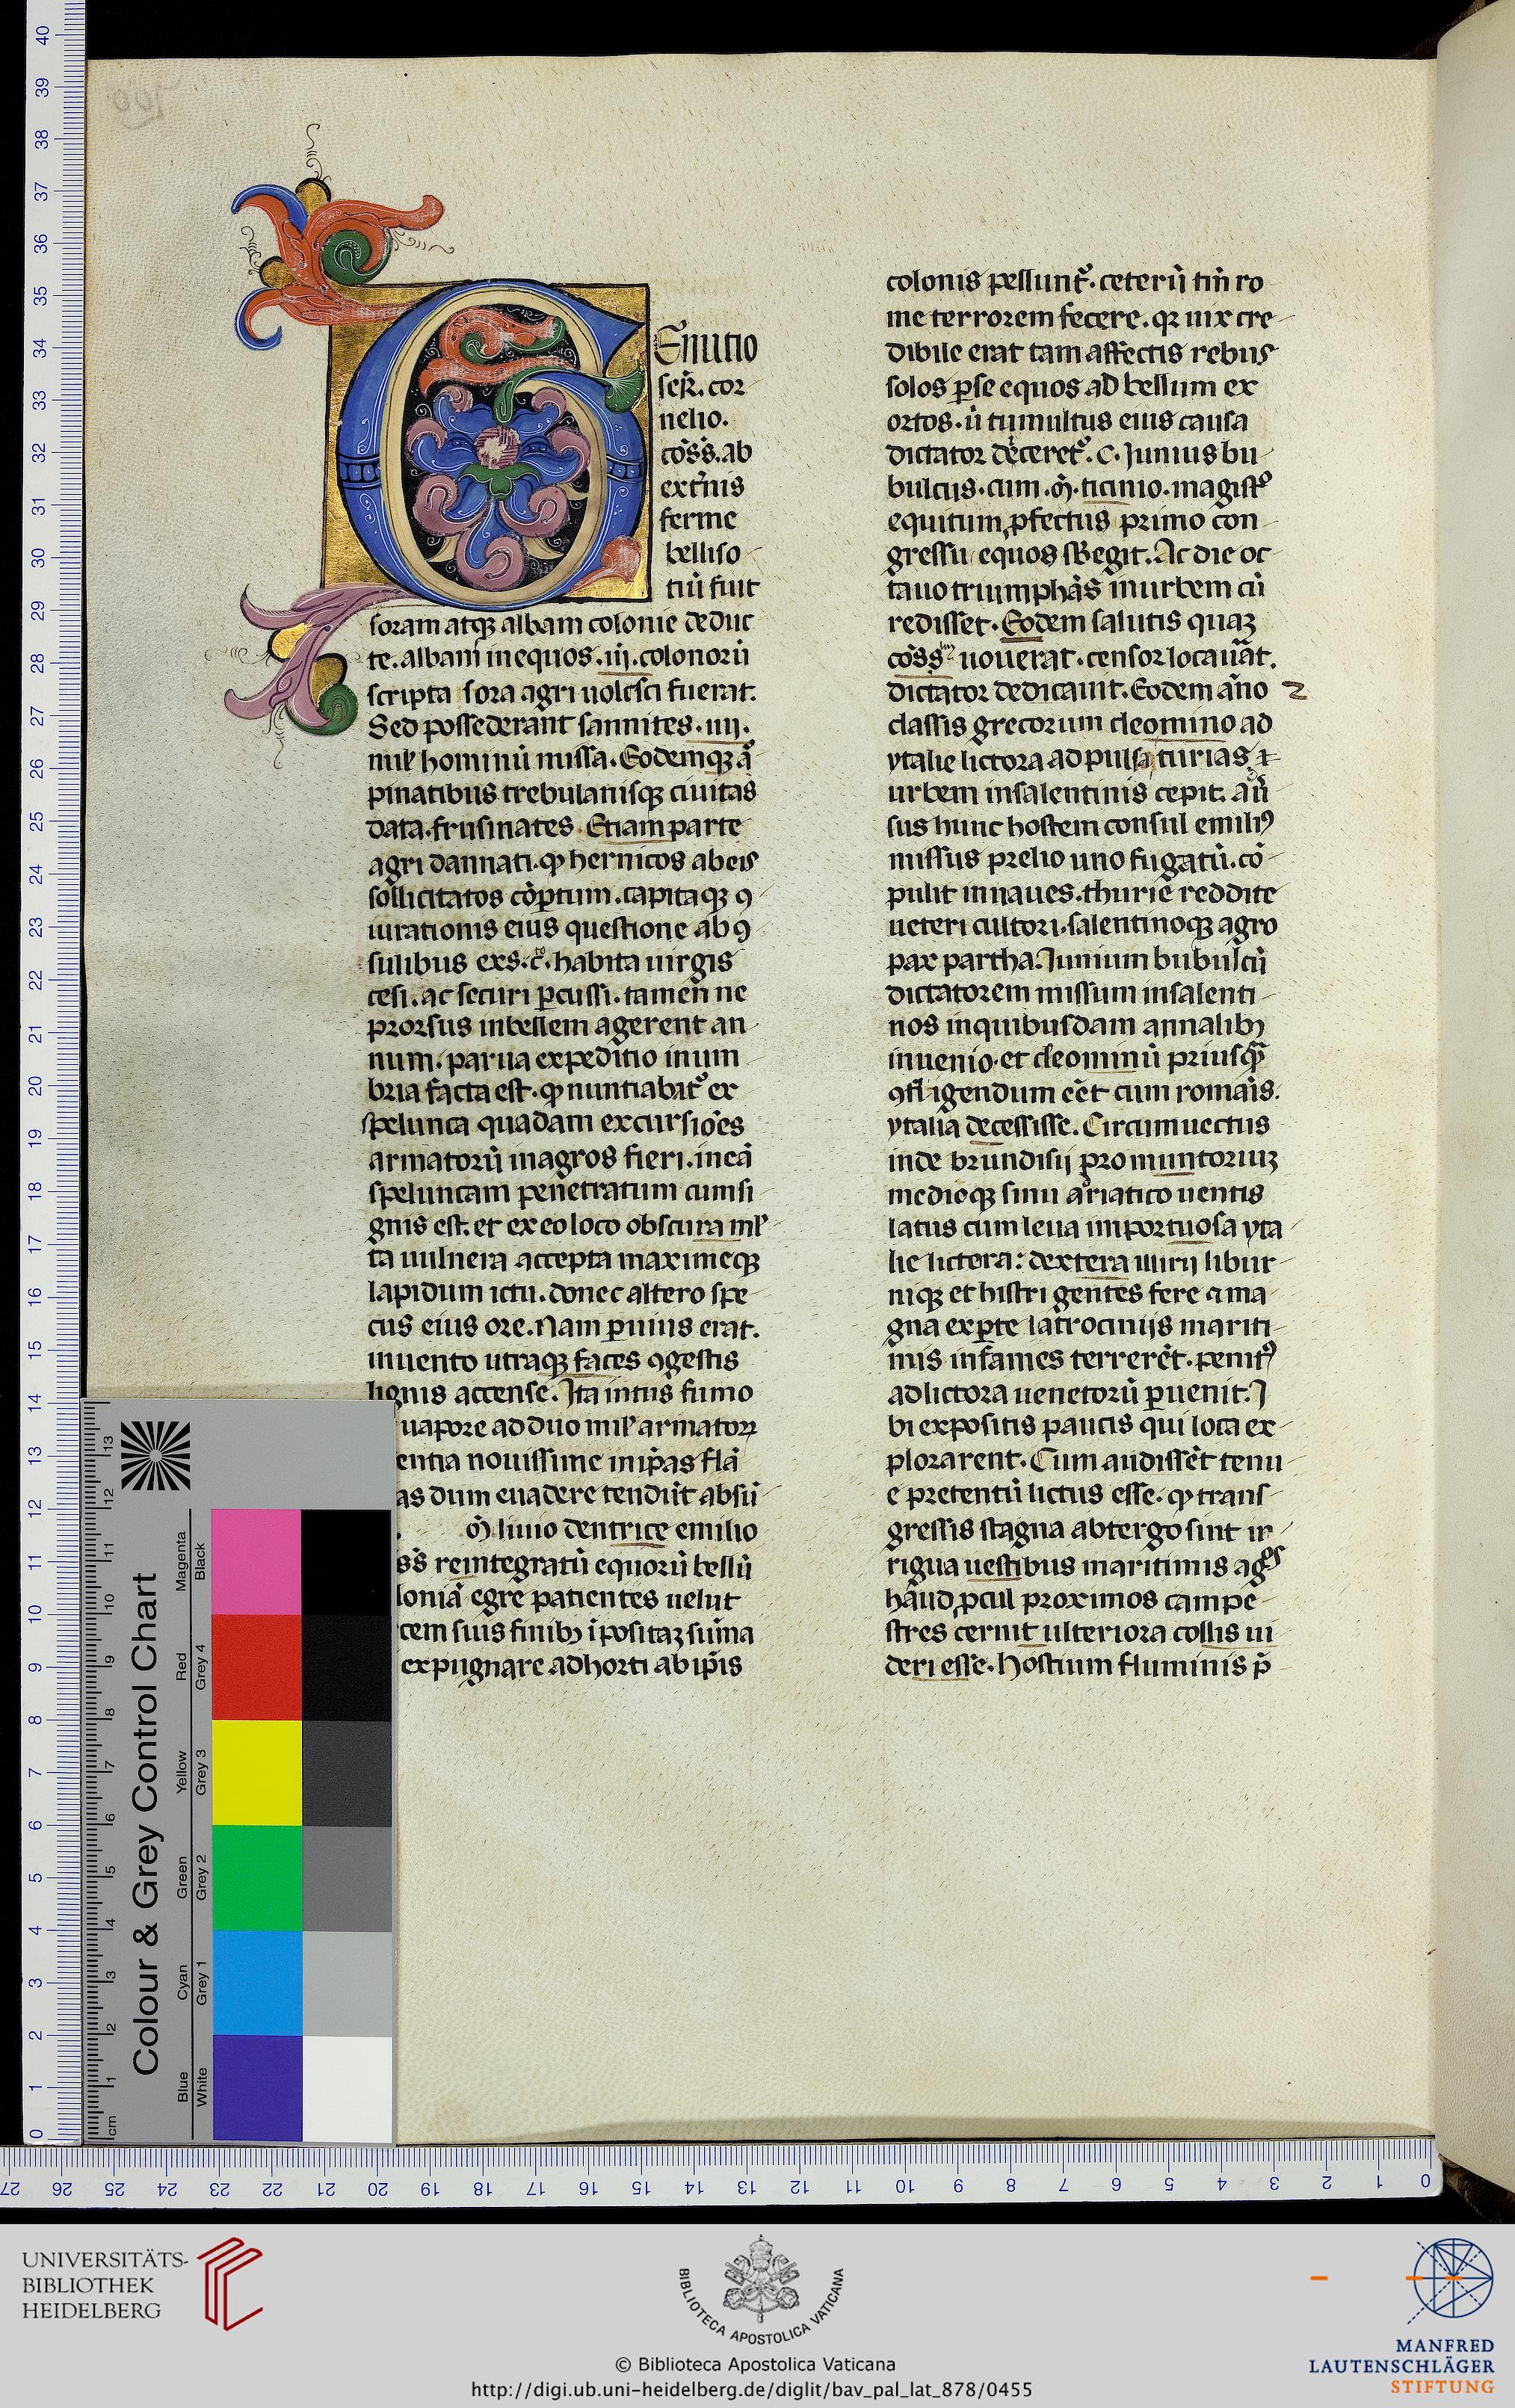 Genutio
ser̄. cor
nelio.
cōs̄s̄. ab
ext̄nis
ferme
bellis o
tiū fuit
soram atqꝫ albam colonie deduc
te. albam in equos .iij. colonorū
scripta sora agri uolesci fuerat.
Sed possederant sannites .iiij.
mil̛ hominū missa. Eodemqꝫ ā
pinatibus trebulanisqꝫ ciuitas
data. frusinates. Etiam parte
agri dannati. ꝙ hernicos ab eis
sollicitatos cōp̱tum. capitaqꝫ ꝯ
iurationis eius questione ab ꝯ
sulibus ex .s. c̄. habita uirgis
cesi. ac securi ꝑcussi. tamen ne
prorsus inbellem agerent an
num. parua expeditio in um
bria facta est. ꝙ nuntiabat᷒ ex
spelunca quadam excursiōes
armatorū in agros fieri. in eā
speluncam penetratum cum si
gnis est. et ex eo loco obscura ml̛
ta uulnera accepta maximeqꝫ
lapidum ictu. donec altero spe
cus eius ore. Nam ꝑuius erat.
inuento utraqꝫ faces ꝯgestis
lignis accense. Ita intus fumo
uapore ad duo mil̛ armatoꝝ
entia nouissime in ip̄as flā
as dum euadere tendūt absū
. ꝳ liuio dentrice emilio
s̄s̄ reintegratū equorū bellū
loniā egre patientes uelut
cem suis finibꝫ īpositaꝫ sūma
expugnare adhorti ab ip̄is
colonis pellunt᷒. ceterū tm̄ ro
me terrorem fecere. qꝛ uix cre
dibile erat tam affectis rebus
solos ꝑ se equos ad bellum ex
ortos. ū tumultus eius causa
dictator deceret᷒. C. Junius bu
bulcus. cum .ꝳ. ticinio. magist᷒o
equitum ꝓfectus primo con
gressu equos sb̄egit. Ac die oc
tauo triumphās in urbem cū
redisset. Eodem salutis quaꝫ
cōs̄s̄ uouerat. censor locauāt.
dictator dedicauit. Eodem āno
classis grecorum cleomino ad
ytalie lictora ad pulsa turias ⁊
urbem in salentinis cepit. adū
sus hunc hostem consul emiliꝰ
missus prelio uno fugatū. cō
pulit in naues. thurie reddite
ueteri cultori. salentinoqꝫ agro
pax partha. Junium bubulcū
dictatorem missum in salenti
nos in quibusdam annalibꝫ
inuenio. et cleominū priusqꝫ̄
ꝯfligendum eēt cum romāis.
ytalia decessisse. Circumuectus
inde brundisij promuntoriuꝫ
medioqꝫ sinu adriatico uentis
latus cum leua importuosa yta
lie lictora: dextera illirij libur
niqꝫ et histri gentes fere a ma
gna exꝑte latrocinijs mariti
mis infames terrerēt. penitꝰ
ad lictora uenetorū ꝑuenit. J
bi expositis paucis qui loca ex
plorarent. Cum audissēt tenu
e pretentū lictus esse. ꝙ trans
gressis stagna ab tergo sint ir
rigua uestibus maritimis agos
haud ꝓcul proximos campe
stres cernit ulteriora collis ui
deri esse. hostium fluminis p̄
Colour & Grey Control Chart
Blue Cyan Green Yellow Red Magenta
White Grey 1 Grey 2 Grey 3 Grey 4 Black
cm 1 2 3 4 5 6 7 8 9 10 11 12 13
0 1 2 3 4 5 6 7 8 9 10 11 12 13 14 15 16 17 18 19 20 21 22 23 24 25 26 27 28 29 30 31 32 33 34 35 36 37 38 39 40
27 26 25 24 23 22 21 20 19 18 17 16 15 14 13 12 11 10 9 8 7 6 5 4 3 2 1 0
UNIVERSITÄTS-
BIBLIOTHEK
HEIDELBERG
BIBLIOTECA APOSTOLICA VATICANA
© Biblioteca Apostolica Vaticana
http://digi.ub.uni-heidelberg.de/diglit/bav_pal_lat_878/0455
MANFRED
LAUTENSCHLÄGER
STIFTUNG